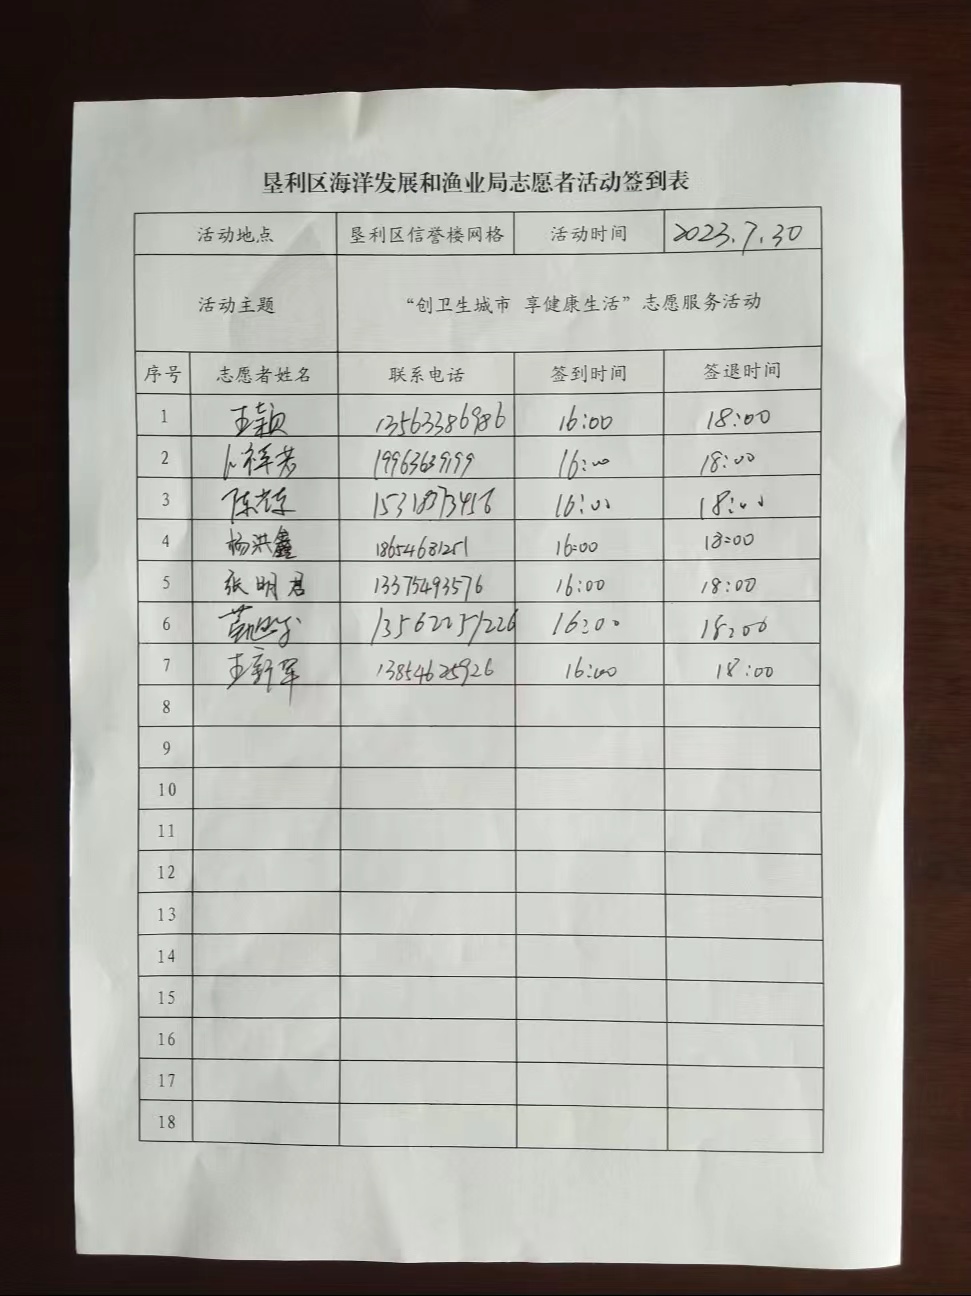 垦利区海洋发展和渔业局志愿者活动签到表
活动地点 垦利区信誉楼网格 活动时间 2023.7.30
活动主题 “创卫生城市 享健康生活”志愿服务活动
序号 志愿者姓名 联系电话 签到时间 签退时间
1 王颖 13563386986 16:00 18:00
2 19963639199 16:00 18:00
3 16:00 18:00
4 杨洪鑫 18654681251 16:00 18:00
5 张明君 13375493576 16:00 18:00
6 13562251226 16:00 18:00
7 王新军 13854625926 16:00 18:00
8
9
10
11
12
13
14
15
16
17
18